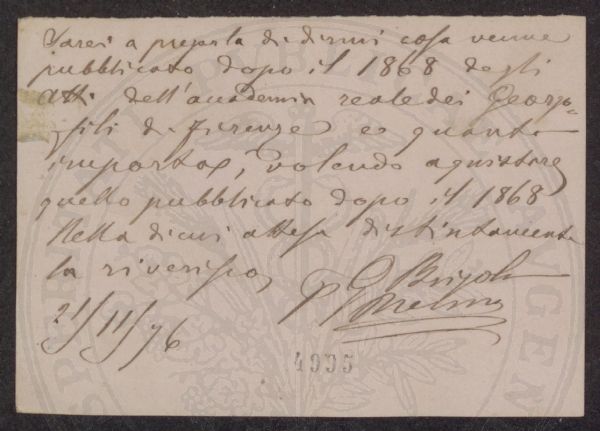 Sarei a pregarla di dirmi cosa venne
pubblicato dopo il 1868 degli
Atti dell'accademia reale dei Georgo-
fili di Firenze e quanto
importa, volendo aquistare
quello pubblicato dopo il 1868
Nella di cui attesa distintamente
la riverisco
21/11/76
4995